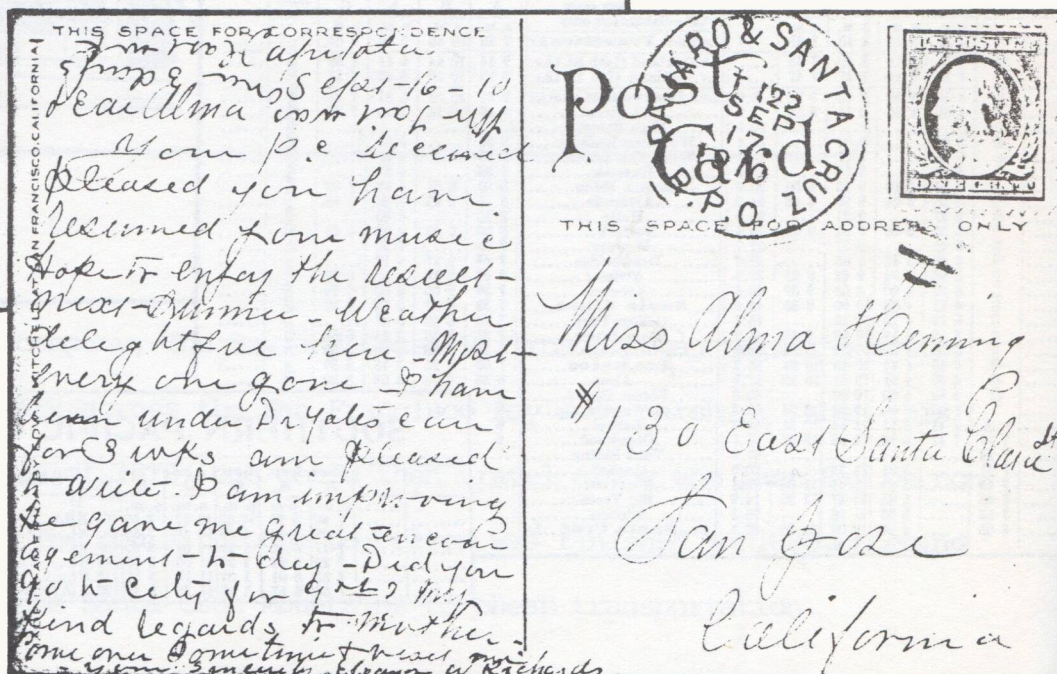 THIS SPACE FOR CORRESPONDENCE
Sept-16-10
Dear Alma am not
Your P.C. received
pleased you have
resumed your music
Hope to enjoy the result
next Summer - Weather
delightful here Most
every one gone I have
been under Dr Yates care
for 3 wks am pleased
to write. I am improving
he gave me great encour
agement to day - Did you
go to City for 9th? My
kind regards to Mother -
Come over Sometime &
Yours Sincerely W Richards
EXCLUSIVELY BY EDWARD H. MITCHELL SAN FRANCISCO, CALIFORNIA
Post Card
PAJARO & SANTA CRUZ
R.P.O.
122
SEP
17
1910
U.S. POSTAGE
ONE CENT
THIS SPACE FOR ADDRESS ONLY
Miss Alma Heming
# 130 East Santa Clara St
San Jose
California